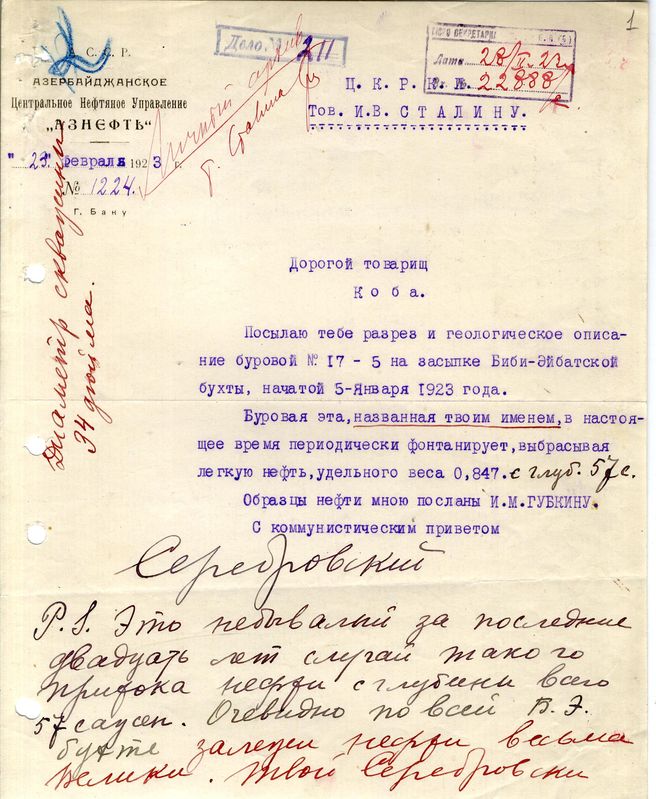 1
Дело №
211
БЮРО СЕКРЕТАРИАТА
Дата 28/II. 23 г.
22888/с
А. С. С. Р.
АЗЕРБАЙДЖАНСКОЕ
Центральное Нефтяное Управление
„АЗНЕФТЬ“
"23" февраля 1923 г.
№ 1224.
Г. Баку
Ц. К. Р. К. П.
Тов. И.В. СТАЛИНУ.
Личный архив
т. Сталина
Диаметр скважины
34 дюйма.
Дорогой товарищ
Коба.
Посылаю тебе разрез и геологическое описа-
ние буровой № 17 - 5 на засыпке Биби-Эйбатской
бухты, начатой 5-Января 1923 года.
Буровая эта,названная твоим именем,в настоя-
щее время периодически фонтанирует,выбрасывая
легкую нефть,удельного веса 0,847. с глуб. 57 с.
Образцы нефти мною посланы И.М.ГУБКИНУ.
С коммунистическим приветом
Серебровский
P.S. Это небывалый за последние
двадцать лет случай такого
притока нефти с глубины всего
57 сажен. Очевидно по всей Б.Э.
бухте залежи нефти весьма
велики. Твой Серебровский